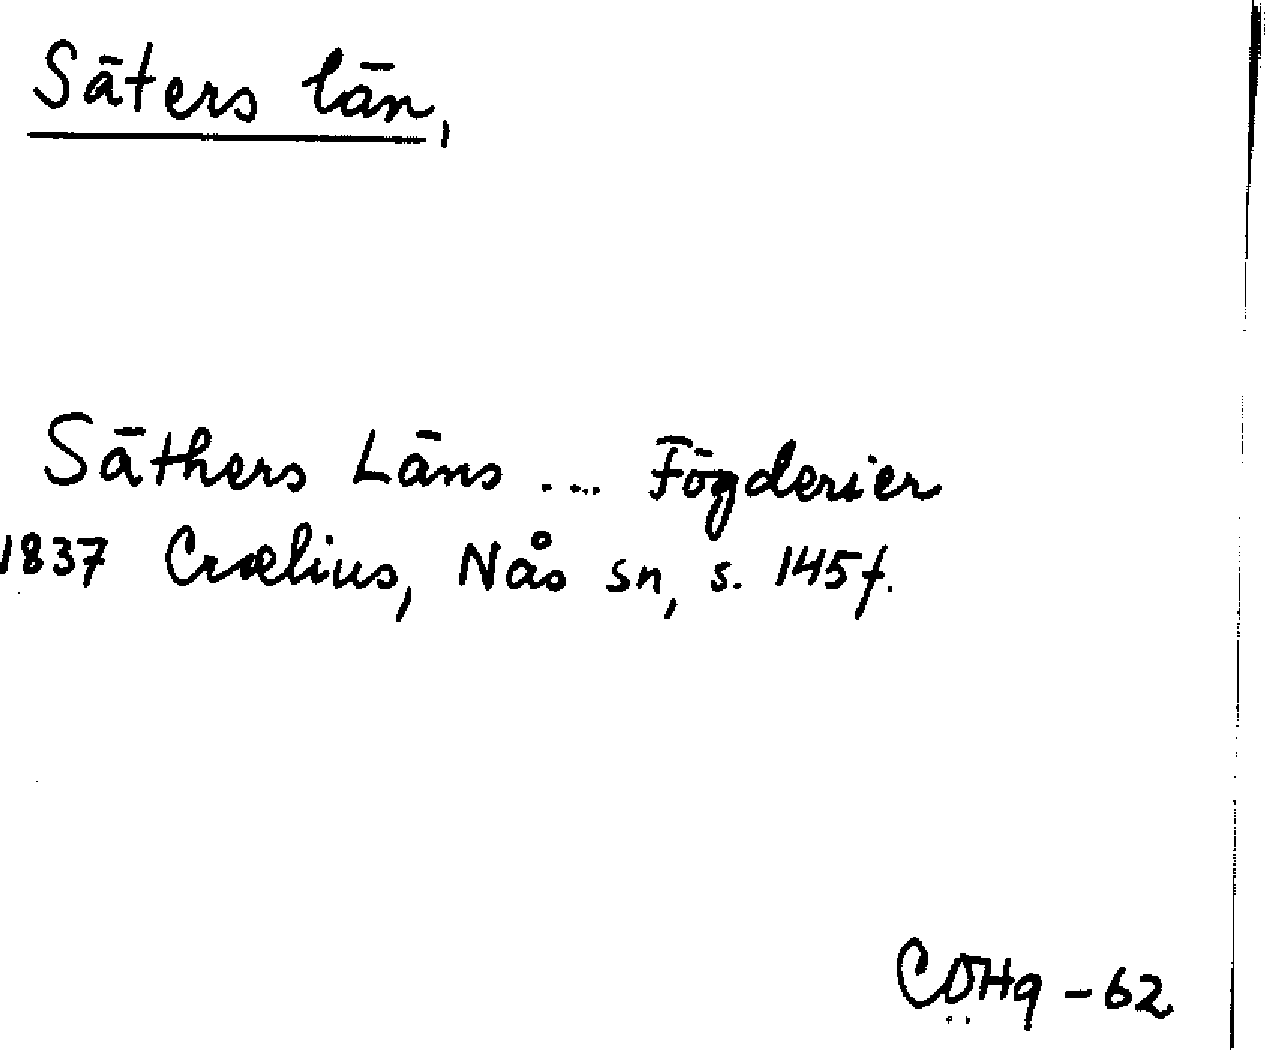 Säters län,
Säthers Läns .... Fögderier
1837 Crælius, Nås sn, s. 145 f.
CÖHg - 62